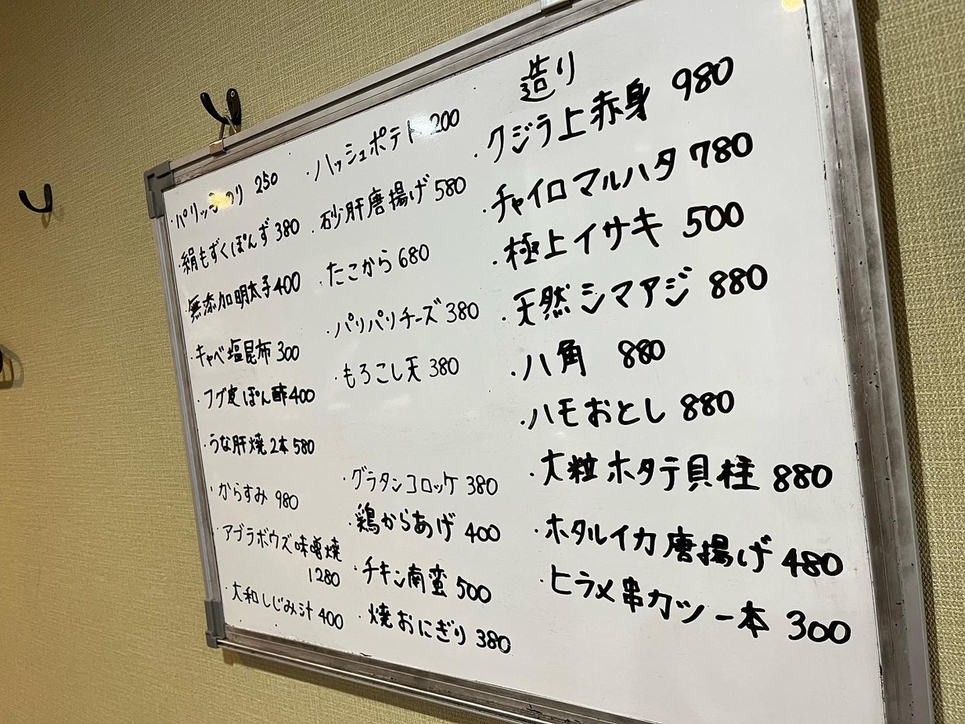 ・パリッ 250
・絹もずくぽんず 380
・無添加明太子 400
・キャベ塩昆布 300
・フグ皮ぽん酢 400
・うな肝焼 2本 580
・からすみ 980
・アブラボウズ味噌焼
1280
・大和しじみ汁 400
・ハッシュポテト 200
・砂肝唐揚げ 580
・たこから 680
・パリパリチーズ 380
・もろこし天 380
・グラタンコロッケ 380
・鶏からあげ 400
・チキン南蛮 500
・焼おにぎり 380
造り
・クジラ上赤身 980
・チャイロマルハタ 780
・極上イサキ 500
・天然シマアジ 880
・八角 880
・ハモおとし 880
・大粒ホタテ貝柱 880
・ホタルイカ唐揚げ 480
・ヒラメ串カツ一本 300